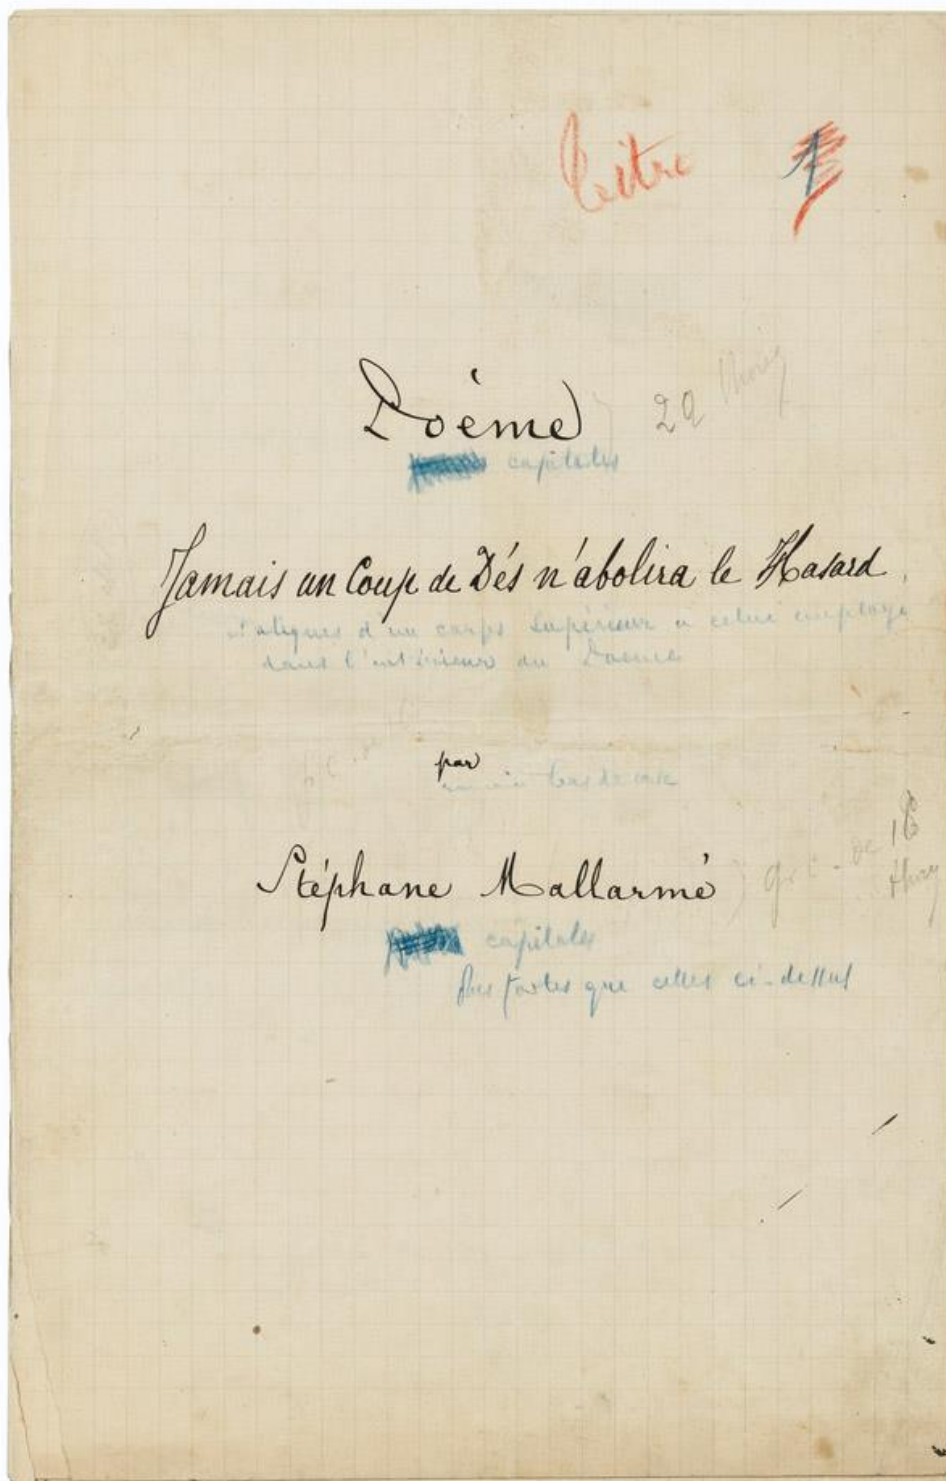 titre 1
Poème
capitales
Jamais un Coup de Dés n'abolira le Hasard
italiques d'un corps supérieur à celui employé
dans l'intérieur du Poème
par
romain bas de casse
Stéphane Mallarmé
capitales
plus fortes que celles ci-dessus